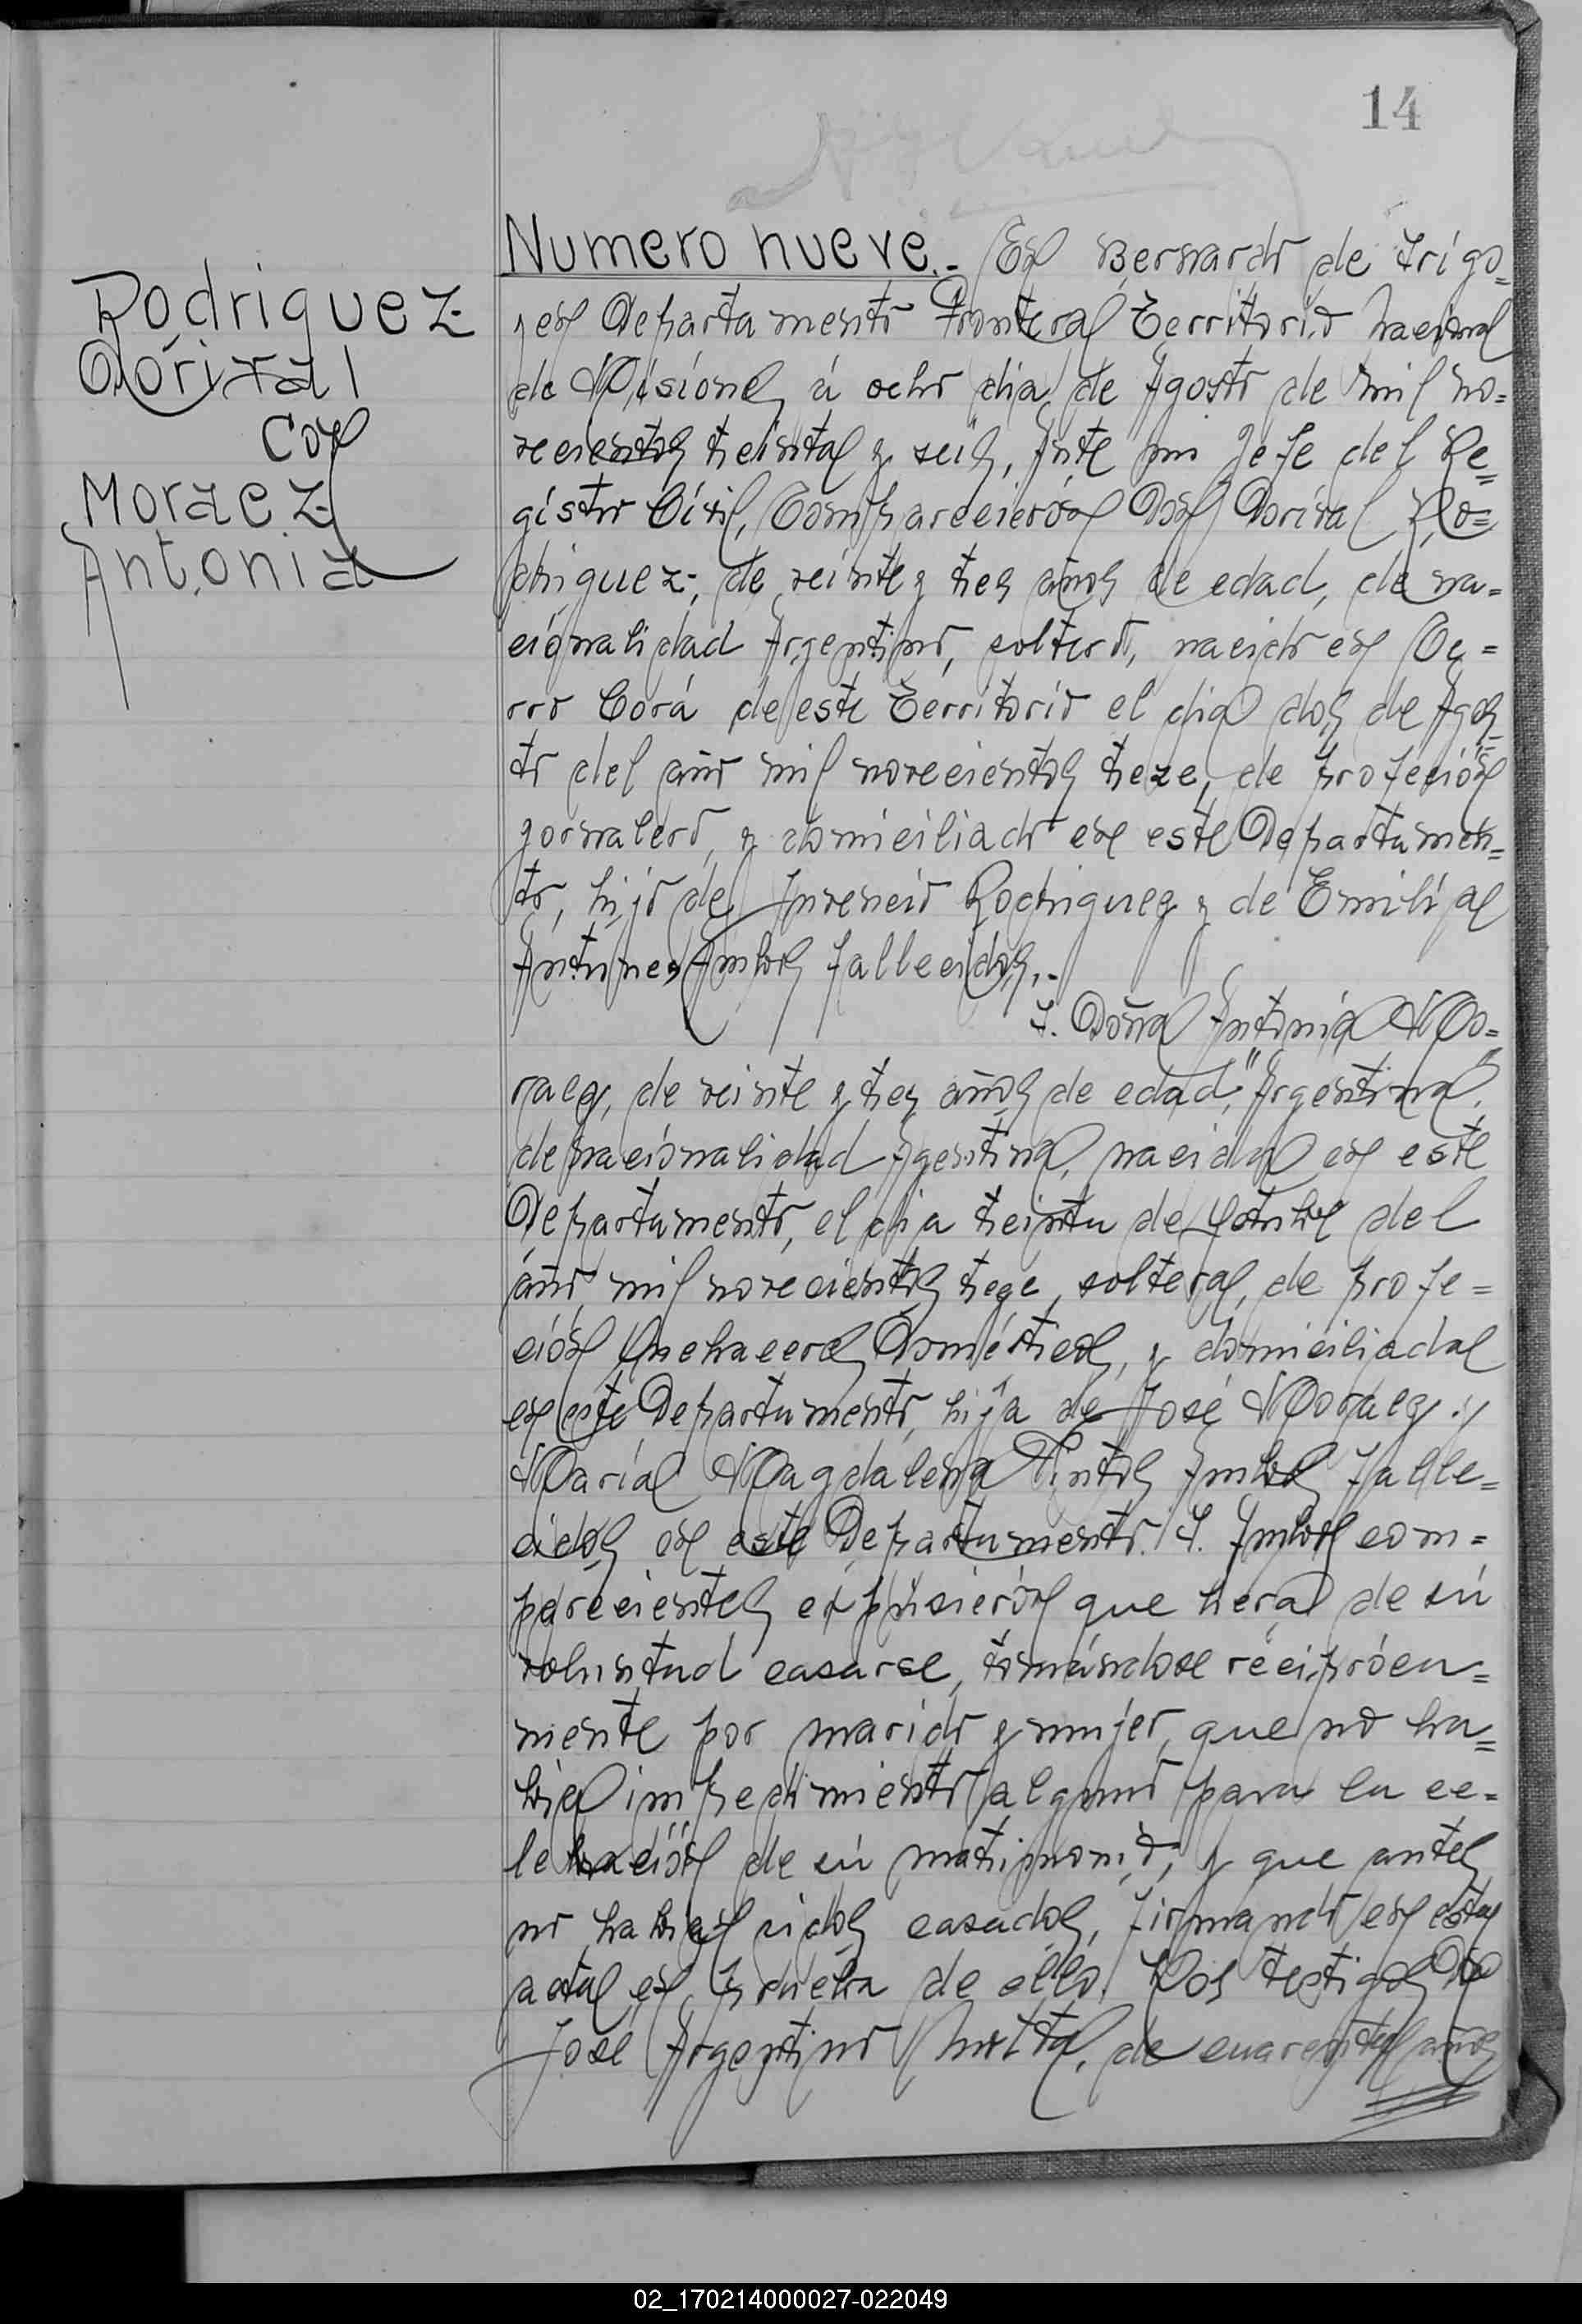 14
Rodriguez
Dorival
con
Moraez
Antonia
Numero nueve.- En Bernardo de Irigo=
yen Departamento Frontera Territorio Nacional
de Misiones, á ocho dia de Agosto de mil no=
vecientos treinta y seis, Ante mi Jefe del Re=
gistro Civil, Comparecierón Don Dorival Ro=
driguez, de veinte y tres años de edad, de na=
cionalidad Argentino, soltero, nacido en Ce=
rro Corá de este Territorio el dia dos de Agos=
to del año mil novecientos treze, de profeción
jornalero, y domiciliado en este Departamen=
to, hijo de Rodriguez y de Emilia
Antunes Ambos fallecidos,.-
Y. Doña Antonia Mo=
raez, de veinte y tres años de edad, "Argentina",
de nacionalidad Agentina, nacida en este
Departamento, el dia treinta de del
año mil novecientos treze, soltera, de profe=
ción Quehaceres Domésticos, y domiciliada
en este Departamento, hija de José Moraez y
Maria Magdalena Pintos Ambos falle=
cidos en este Departamento. Y. Ambos com=
parecientes expusierón que hera de sú
voluntad casarse, tomándose recíproca=
mente por marido y mujer, que no ha=
bia impedimiento alguno para la ce=
lebración de sú matrimonio, y que antes
no habian sidos casados, firmando en esta
acta en prueba de ello. Los testigos Don
José Argentino de cuarenta años
02_170214000027-022049